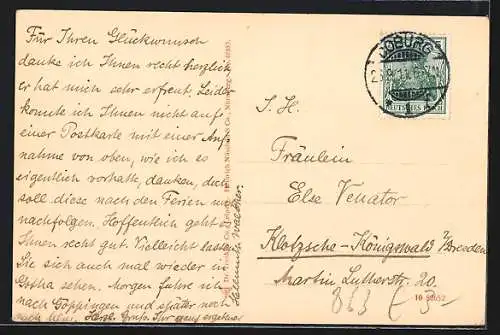 Für Ihren Glückwunsch
danke ich Ihnen recht herzlich
er hat mich sehr erfreut. Leider
konnte ich Ihnen nicht auf
einer Postkarte mit einer Auf-
nahme von oben, wie ich es
eigentlich vorhatte, danken, doch
soll diese nach den Ferien nur
nachfolgen. Hoffentlich geht es
Ihnen recht gut. Vielleicht lassen
Sie sich auch mal wieder in
Gotha sehen. Morgen fahre ich
nach Göppingen und später noch
Herzl. Gruß Ihr ganz ergebener
COBURG
DEUTSCHES REICH
S. H.
Fräulein
Else Venator
Klotzsche-Königswald b/Dresden
Martin Lutherstr. 20.